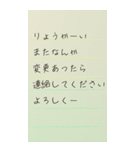 りょうかーい
またなんか
変更あったら
連絡してください
よろしくー